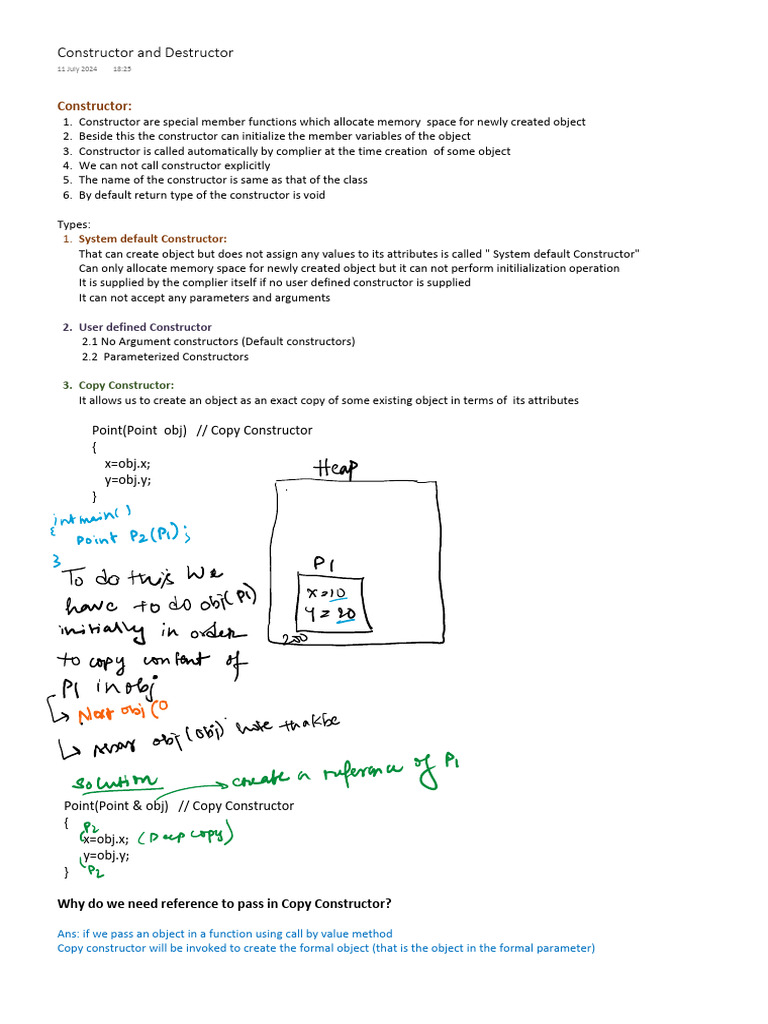 Constructor and Destructor
11 July 2024 18:25
Constructor:
1. Constructor are special member functions which allocate memory space for newly created object
2. Beside this the constructor can initialize the member variables of the object
3. Constructor is called automatically by complier at the time creation of some object
4. We can not call constructor explicitly
5. The name of the constructor is same as that of the class
6. By default return type of the constructor is void
Types:
1. System default Constructor:
That can create object but does not assign any values to its attributes is called " System default Constructor"
Can only allocate memory space for newly created object but it can not perform initilialization operation
It is supplied by the complier itself if no user defined constructor is supplied
It can not accept any parameters and arguments
2. User defined Constructor
2.1 No Argument constructors (Default constructors)
2.2 Parameterized Constructors
3. Copy Constructor:
It allows us to create an object as an exact copy of some existing object in terms of its attributes
Point(Point obj) // Copy Constructor
{
x=obj.x;
y=obj.y;
}
Heap
P1
x=10
y=20
200
int main()
{
Point P2(P1);
}
To do this we
have to do obj(P1)
initially in order
to copy content of
P1 in obj
obj(
obj(obj)
Solution
create a reference of P1
Point(Point & obj) // Copy Constructor
{
P2
x=obj.x; (Deep copy)
y=obj.y;
P2
}
Why do we need reference to pass in Copy Constructor?
Ans: if we pass an object in a function using call by value method
Copy constructor will be invoked to create the formal object (that is the object in the formal parameter)